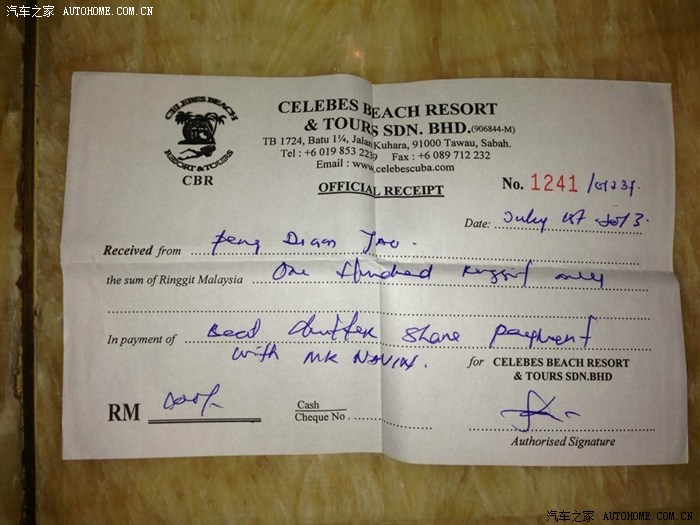 汽车之家 AUTOHOME.COM.CN
CELEBES BEACH
RESORT & TOURS
CBR
CELEBES BEACH RESORT
& TOURS SDN. BHD.(906844-M)
TB 1724, Batu 1¼, Jalan Kuhara, 91000 Tawau, Sabah.
Tel : +6 019 853 2239 Fax : +6 089 712 232
Email : www.celebescuba.com
OFFICIAL RECEIPT
No. 1241
Date: July 1st 2013.
Received from Peng Dian
the sum of Ringgit Malaysia One Hundred Ringgit only
In payment of Boat charter share payment
with MR
for CELEBES BEACH RESORT
& TOURS SDN.BHD
RM
Cash
Cheque No.
Authorised Signature
汽车之家 AUTOHOME.COM.CN